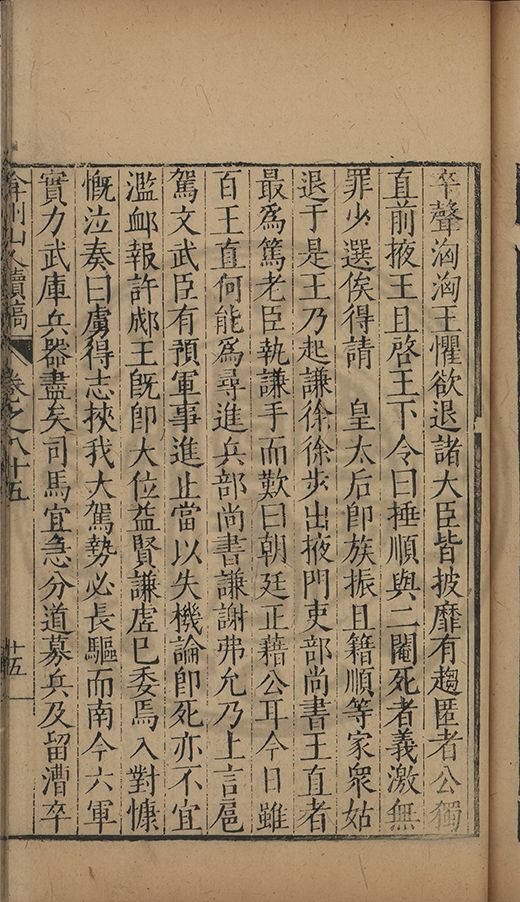 卒聲洶洶王懼欲退諸大臣皆披靡有趨匿者公獨
直前掖王且啓王下令曰捶順與二閹死者義激無
罪少選俟得請　皇太后卽族振且籍順等家衆姑
退于是王乃起謙徐徐步出掖門吏部尚書王直者
最爲篤老臣執謙手而歎曰朝廷正藉公耳今日雖
百王直何能爲尋進兵部尚書謙謝弗允乃上言扈
駕文武臣有預軍事進止當以失機論卽死亦不宜
濫衈報許郕王旣卽大位益賢謙虛已委焉入對慷
慨泣奏曰虜得志挾我大駕勢必長驅而南今六軍
實力武庫兵器盡矣司馬宜急分道募兵及留漕卒
弇州山人續稿　卷之八十五　十五